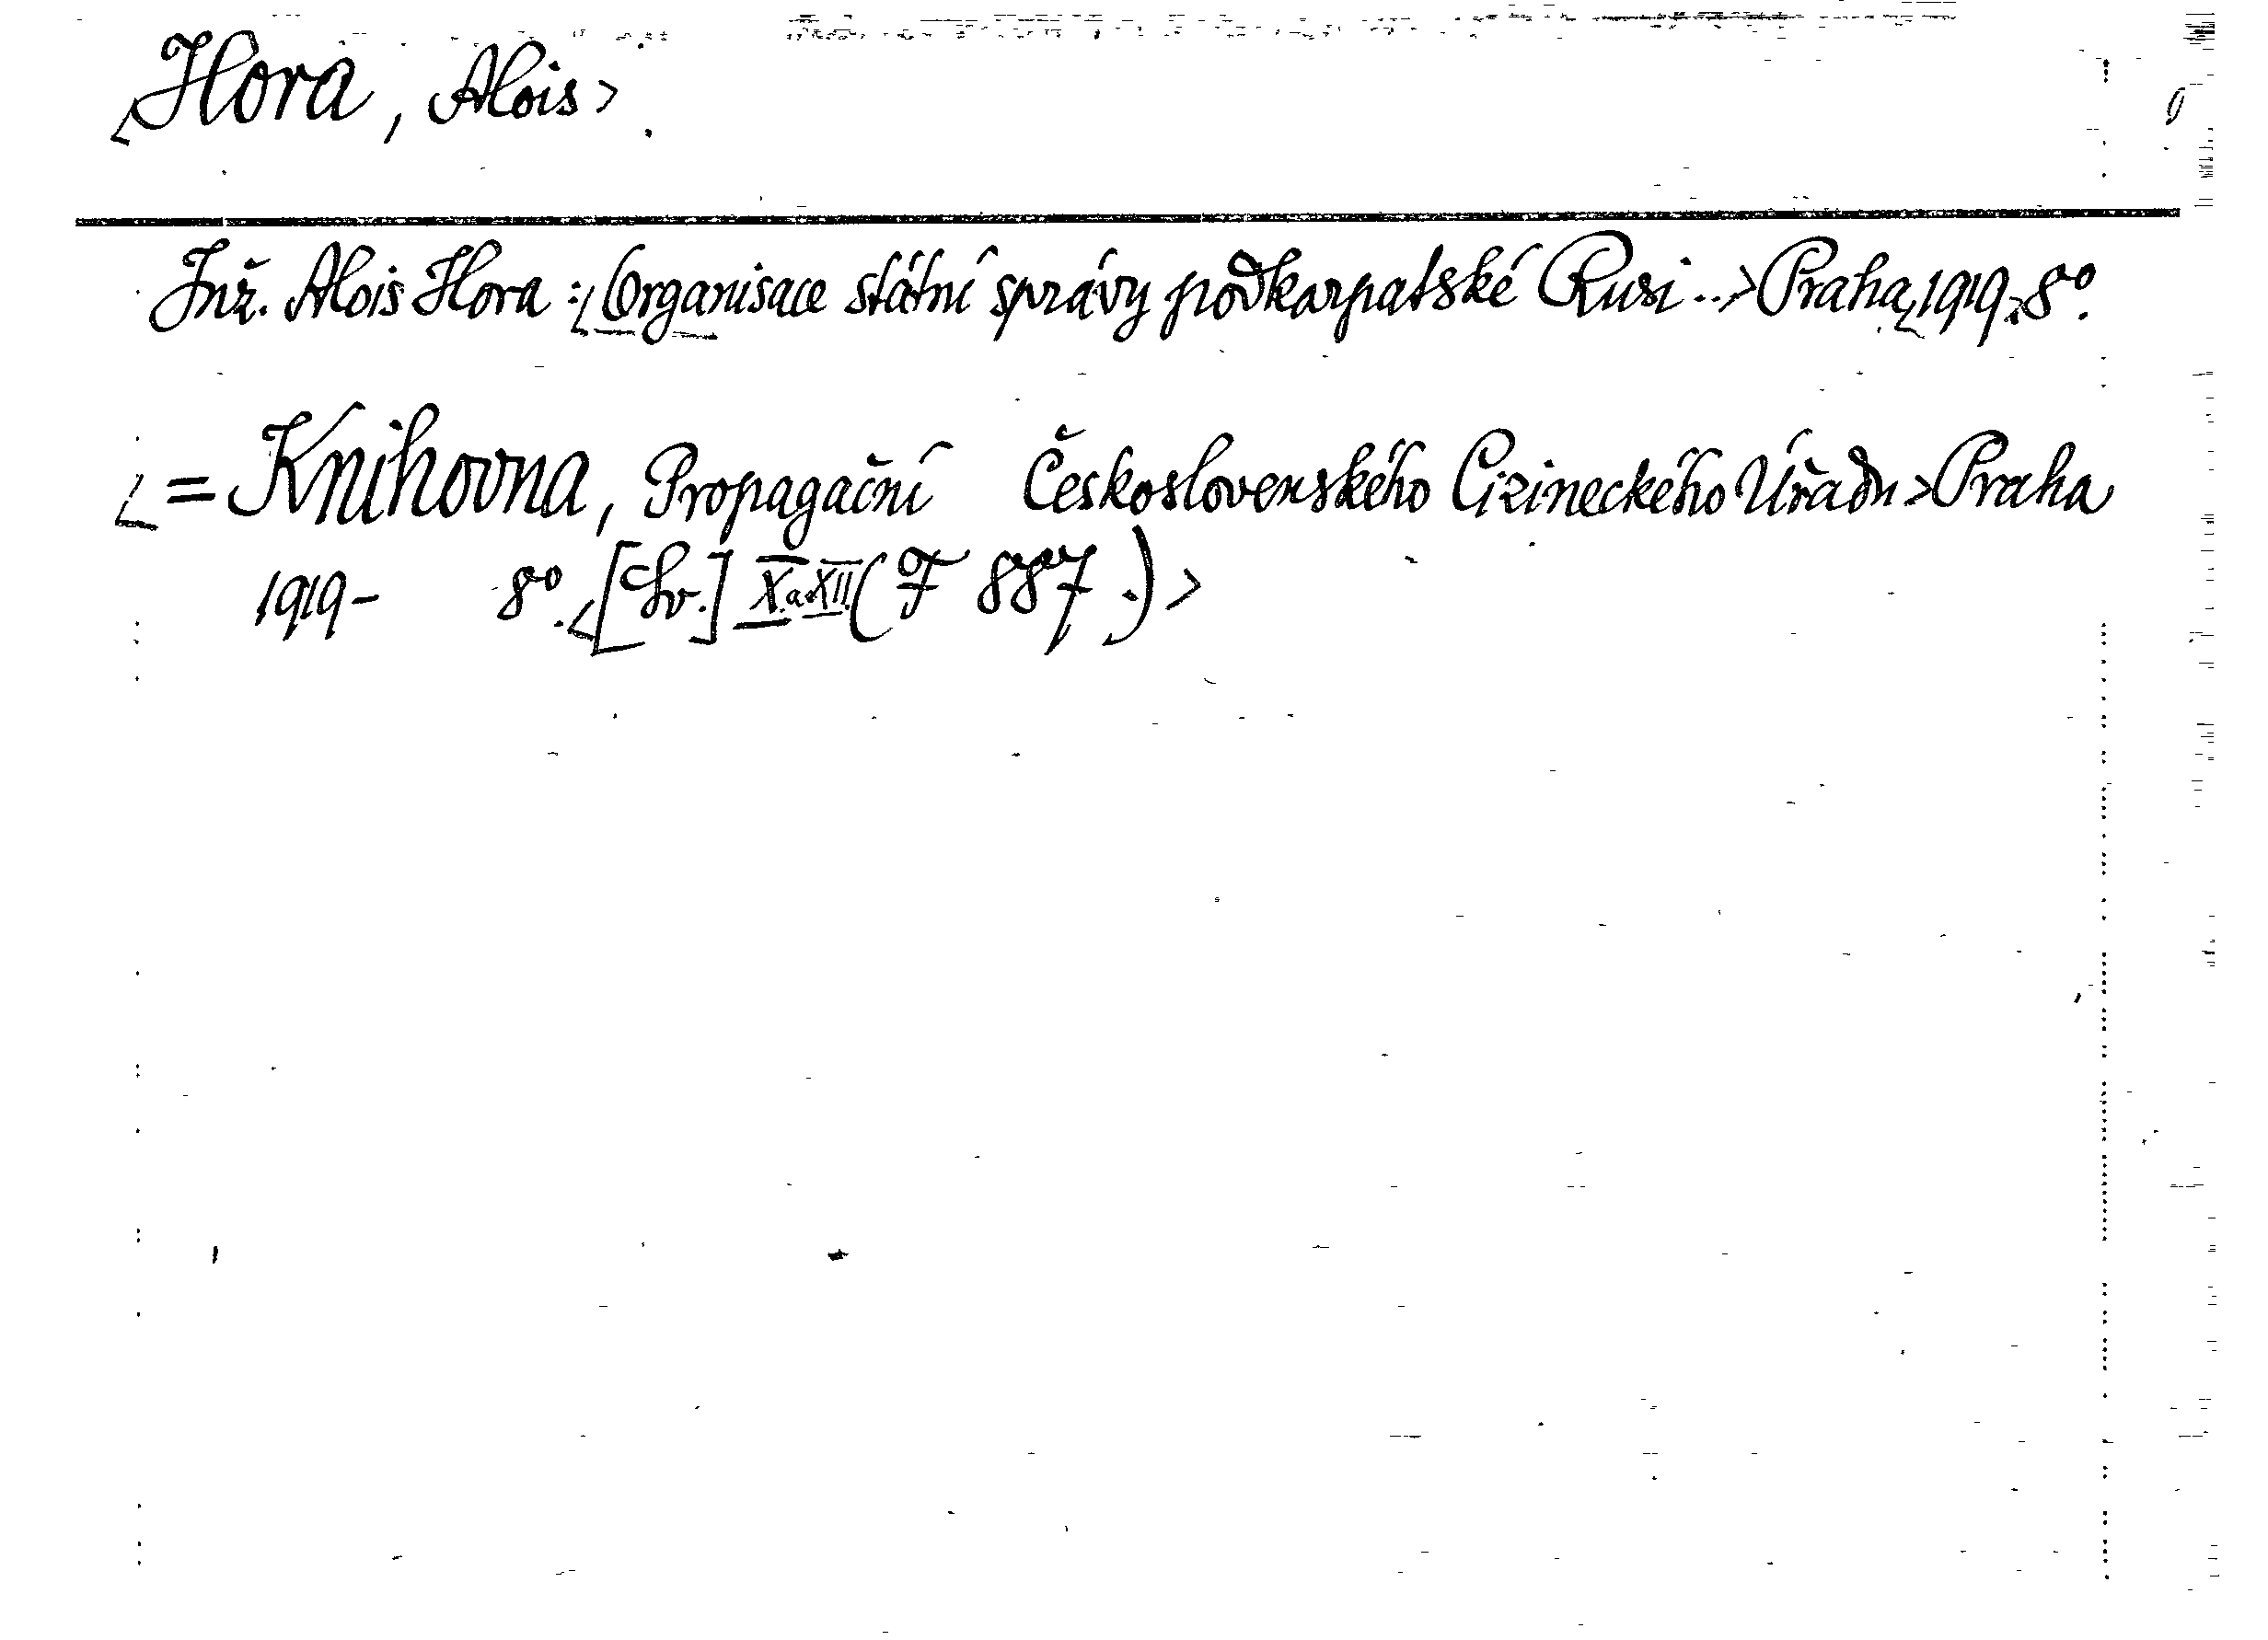 <Hora, Alois>
Inž. Alois Hora: <Organisace státní správy podkarpatské Rusi..> Praha <1919.> 8°.
<= Knihovna, Propagační Československého Cizineckého Úřadu> Praha
1919- 8°. <[Sv.] X. a XII. (F 887.)>